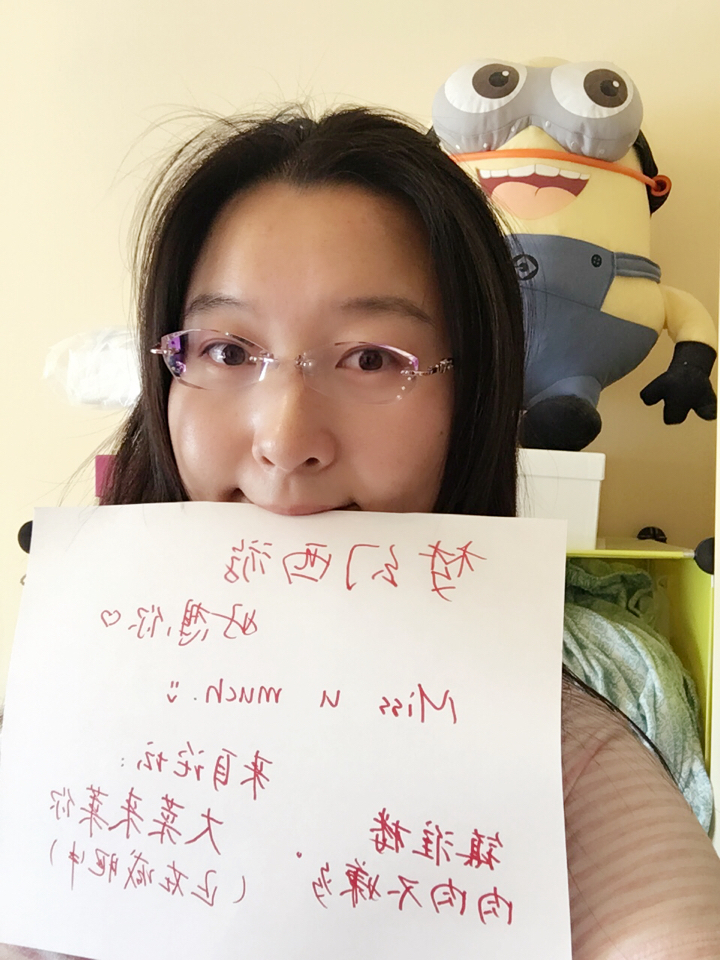 梦幻西游
好想你♡
Miss u much.
来自论坛:
镇淮楼
肉肉不嫌多
大菜来菜你
(正在减肥中)